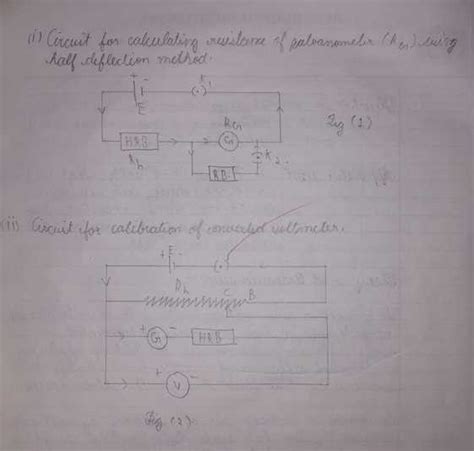 (i) Circuit for calculating resistance of galvanometer (RG) using
half deflection method.
+ -
K1
E
HRB
Rh
RG
G
Fig (1.)
K2.
RB
(ii) Circuit for calibration of converted voltmeter.
+ E -
Rh
C B
+ G -
HRB
+ V -
Fig (2)